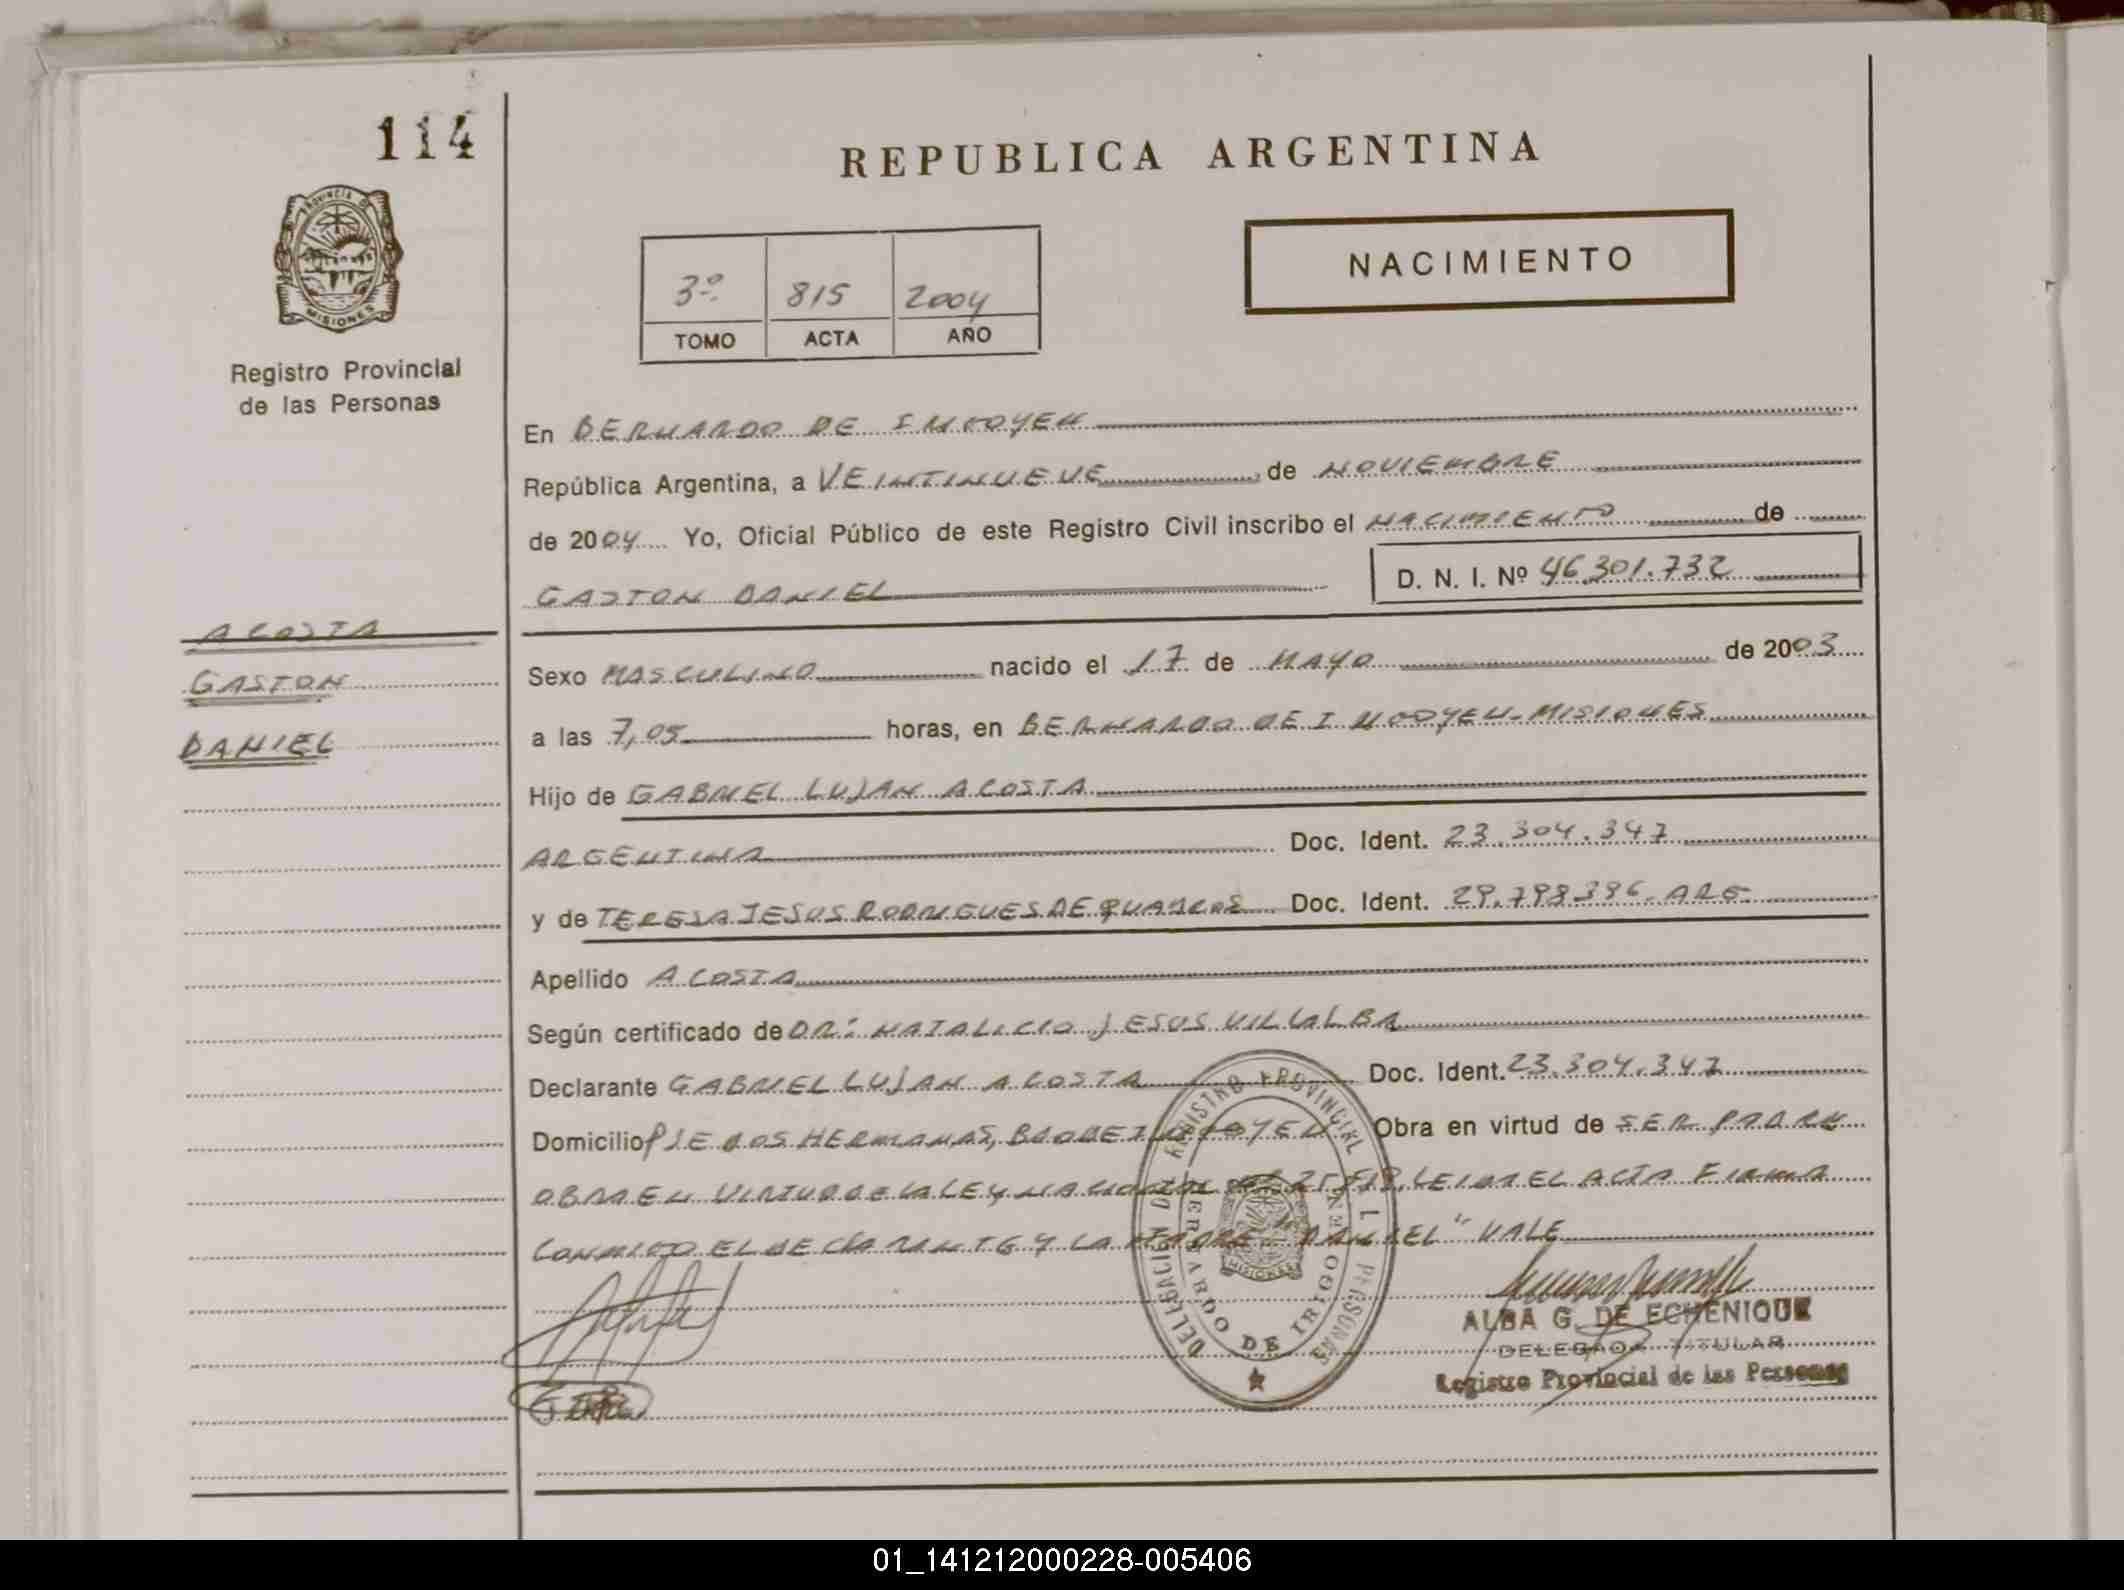 114
REPUBLICA ARGENTINA
PROVINCIA DE
MISIONES
NACIMIENTO
3º 815 2004
TOMO ACTA AÑO
Registro Provincial
de las Personas
En BERNARDO DE IRIGOYEN
República Argentina, a VEINTINUEVE de NOVIEMBRE
de 2004 Yo, Oficial Público de este Registro Civil inscribo el NACIMIENTO de
GASTON DANIEL D. N. I. Nº 46.301.732
ACOSTA
GASTON
DANIEL
Sexo MASCULINO nacido el 17 de MAYO de 2003
a las 7,05 horas, en BERNARDO DE IRIGOYEN-MISIONES
Hijo de GABRIEL LUJAN ACOSTA
ARGENTINA Doc. Ident. 23.304.347
y de TERESA JESUS RODRIGUES DE QUADROS Doc. Ident. 29.798.396 ARG
Apellido ACOSTA
Según certificado de DR: NATALICIO JESUS VILLALBA
Declarante GABRIEL LUJAN ACOSTA Doc. Ident. 23.304.347
Domicilio PJE DOS HERMANAS, BDO DE IRIGOYEN Obra en virtud de SER PADRE
OBRA EN VIRTUD DE LA LEY NACIONAL LEIDA EL ACTA FIRMA
CONMIGO EL DECLARANTE Y LA MADRE "DANIEL" VALE
DELEGACION DEL REGISTRO PROVINCIAL PERSONAS
BERNARDO DE IRIGOYEN
MISIONES
ALBA G. DE ECHENIQUE
DELEGADA TITULAR
Registro Provincial de las Personas
01_141212000228-005406